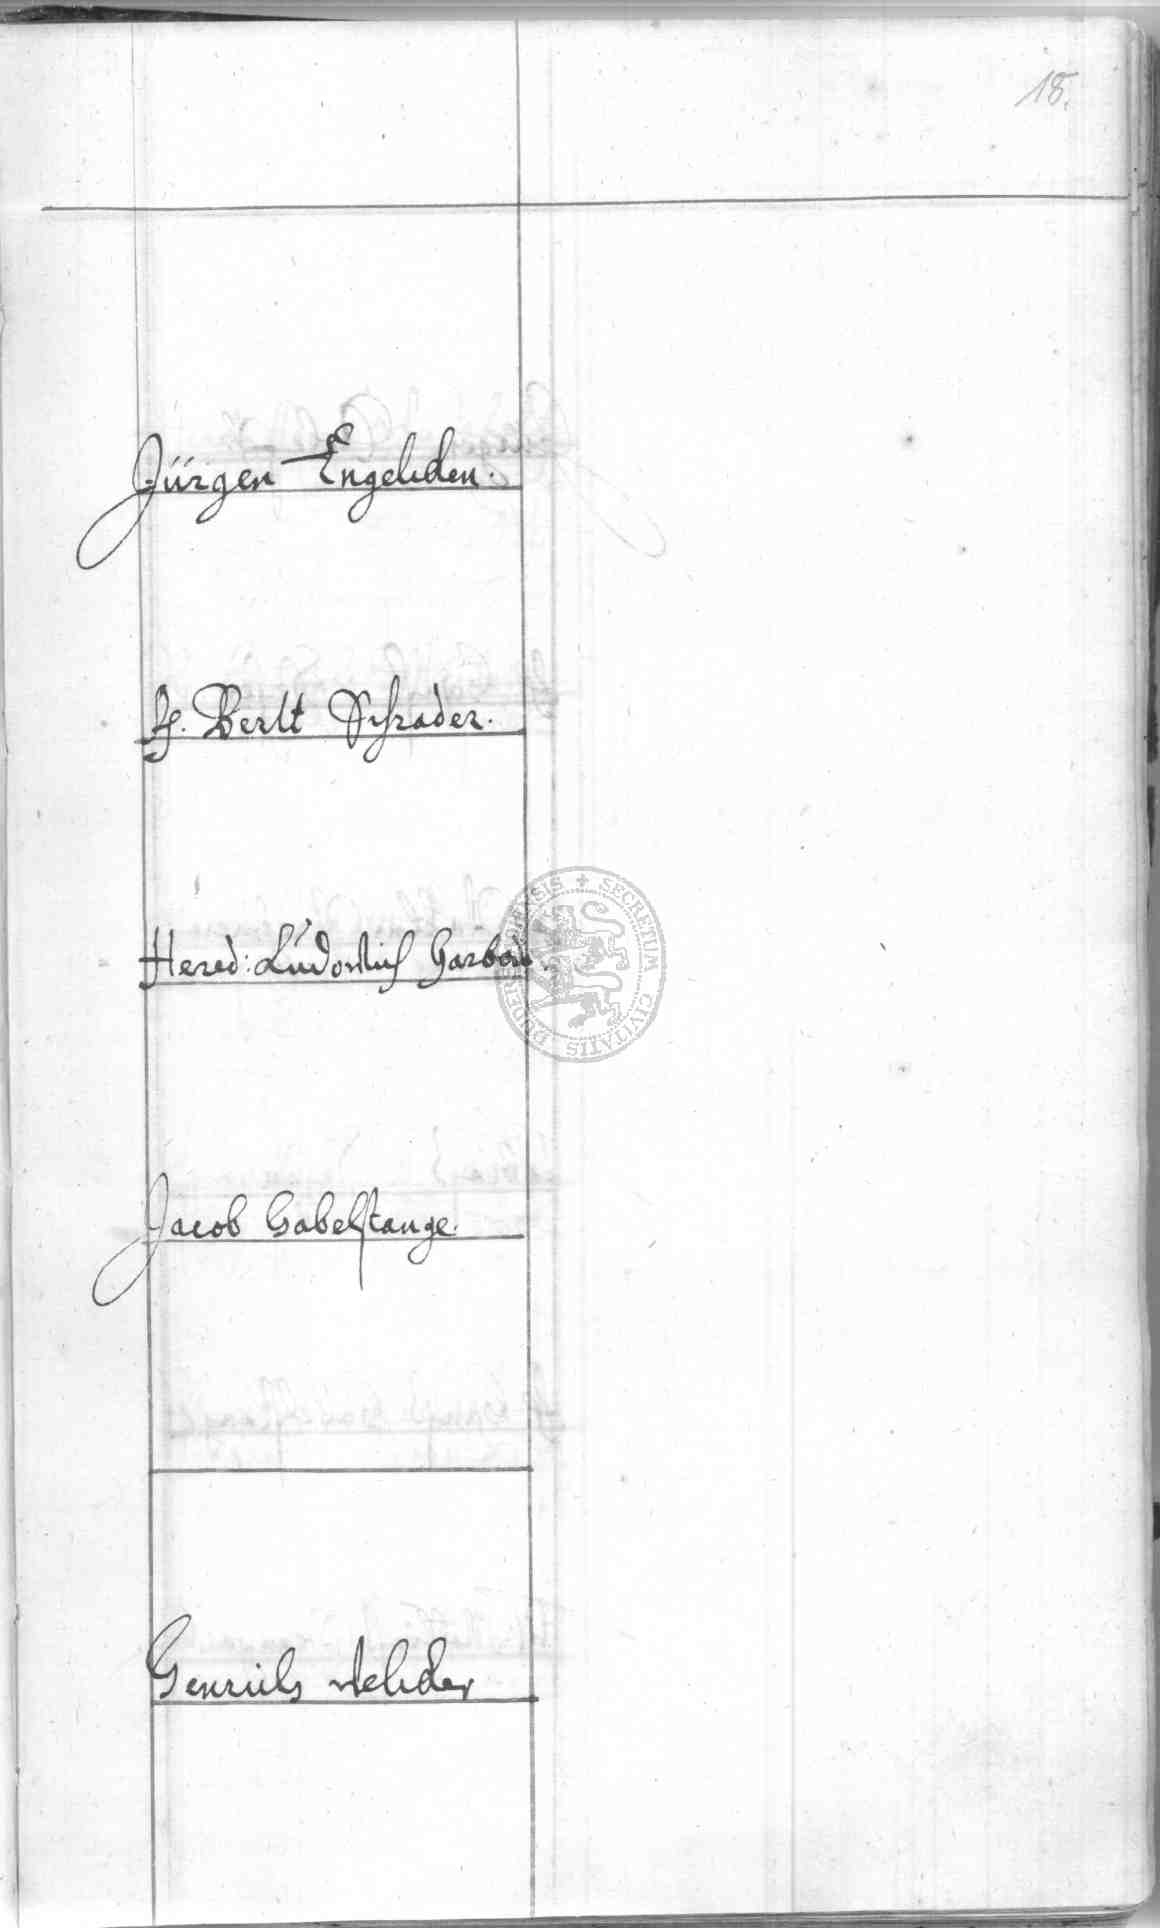 18.
Jürgen Engelcken.
H. Berlt Schrader.
Hered: Ludowich
Jacob Gabelstange.
Henrich
SECRETUM CIVITATIS DUDERSTADENSIS